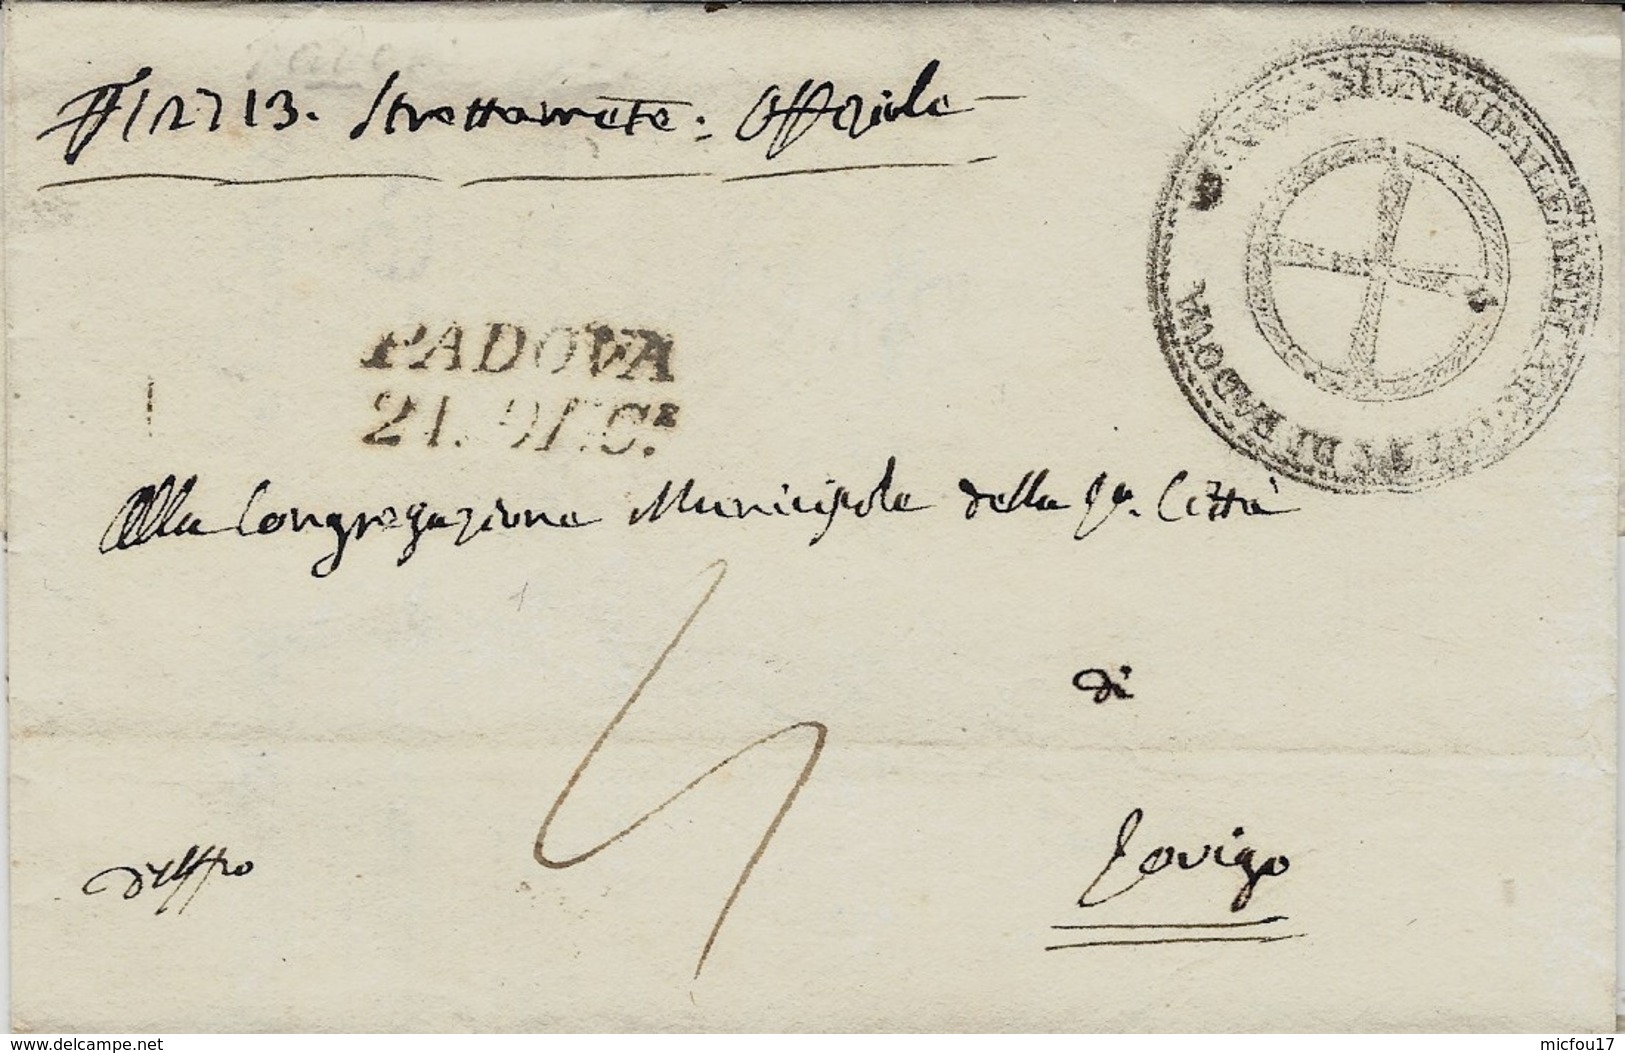 12713. Strettamēte: Offiziale
CONG. MUNICIPALE DELLA R. CITTÀ DI PADOVA
PADOVA
21. DEC.E
Alla Congregazione Municipale della Ra. Città
di
Rovigo
d'Uffo
www.delcampe.net
micfou17